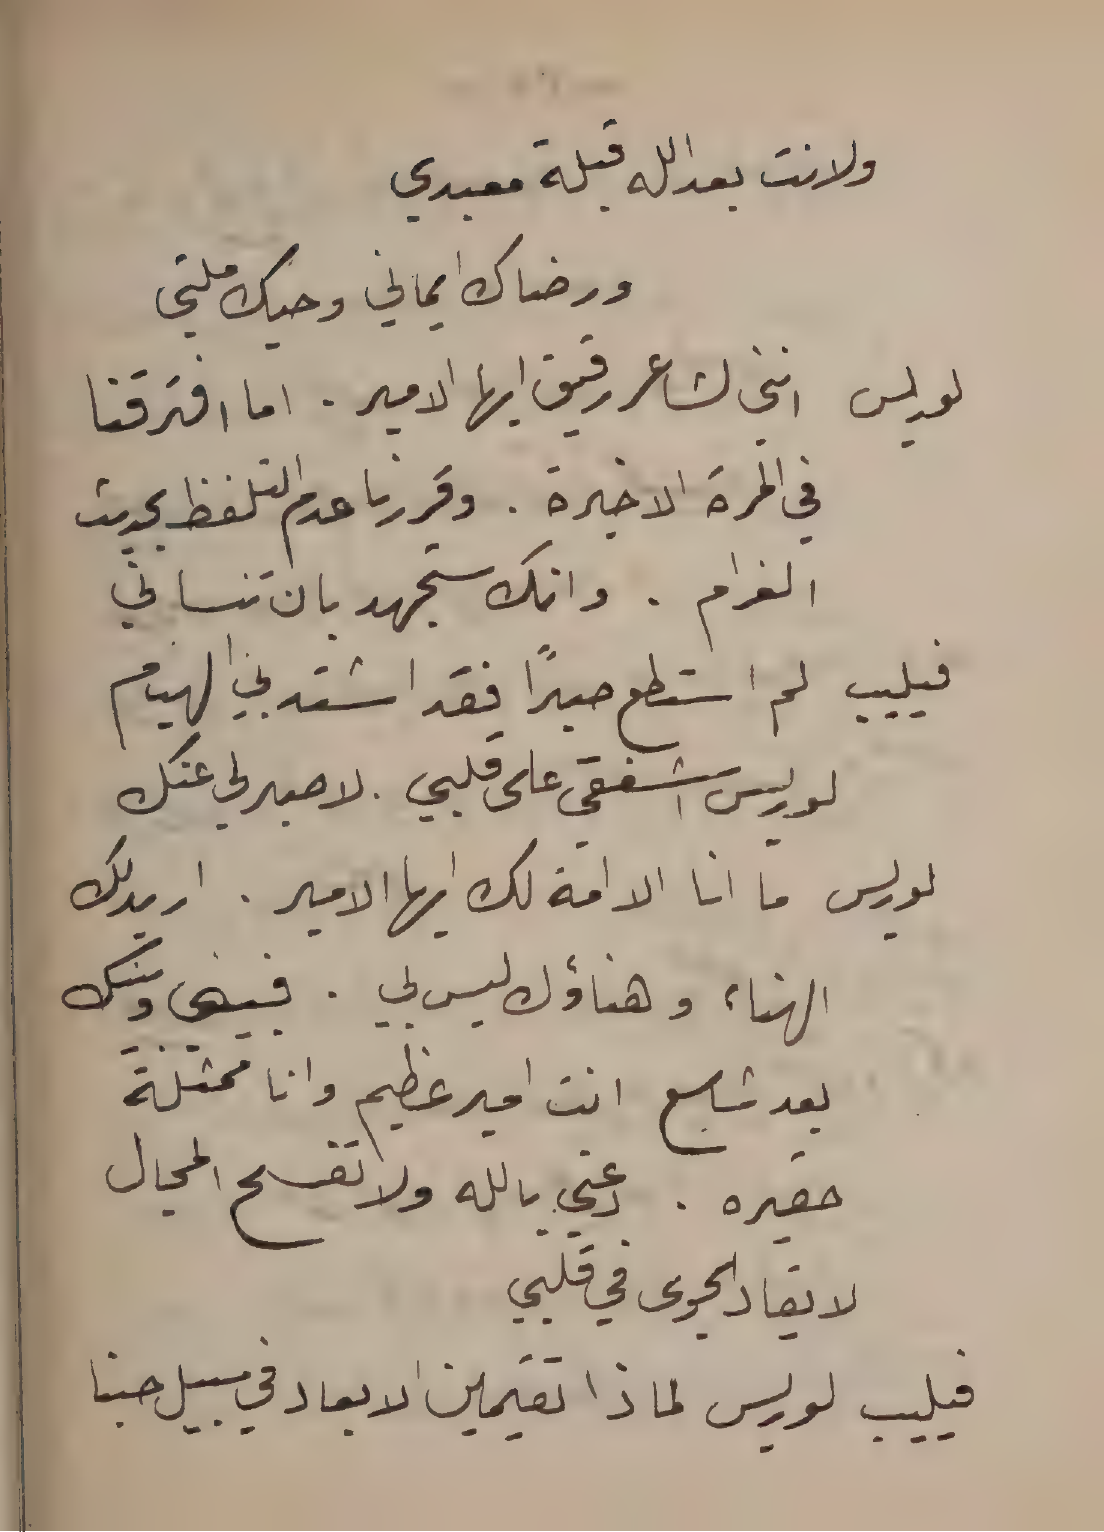 ولانت بعد الله قبلة معبدي
ورضاك ايماني وحبك ملتي
لوريس انني لشاعر رقيق ايها الامير . اما افترقنا
في المرة الاخيرة . وقررنا عدم التلفظ بحديث
الغرام . وانك ستجهد بان تنساني
فيليب لم استطع صبرًا فقد اشتد بي الهيام
لوريس اشفقي على قلبي . لا صبر لي عنك
لوريس ما انا الا امة لك ايها الامير . اريد لك
الهناء وهناؤك ليس بي . فبيني وبينك
بعد شاسع انت امير عظيم وانا ممثلة
حقيره . دعني بالله ولا تفسح المجال
لايقاد الجوى في قلبي
فيليب لوريس لماذا تقيمين الابعاد في سبيل حبنا